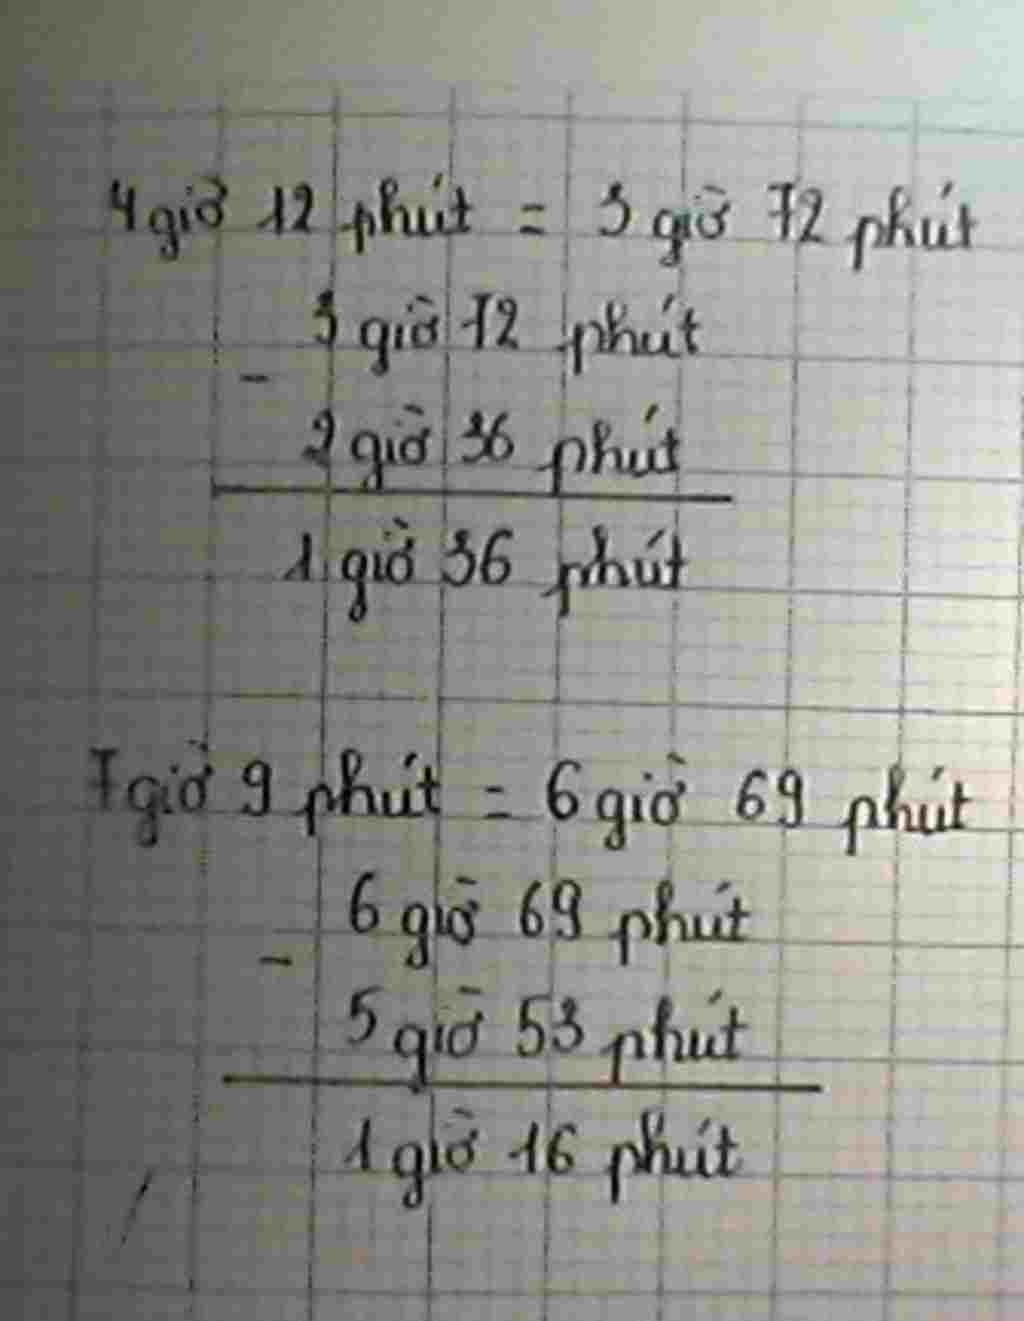 4 giờ 12 phút = 3 giờ 72 phút
3 giờ 72 phút
-
2 giờ 36 phút
1 giờ 36 phút
7 giờ 9 phút = 6 giờ 69 phút
6 giờ 69 phút
-
5 giờ 53 phút
1 giờ 16 phút